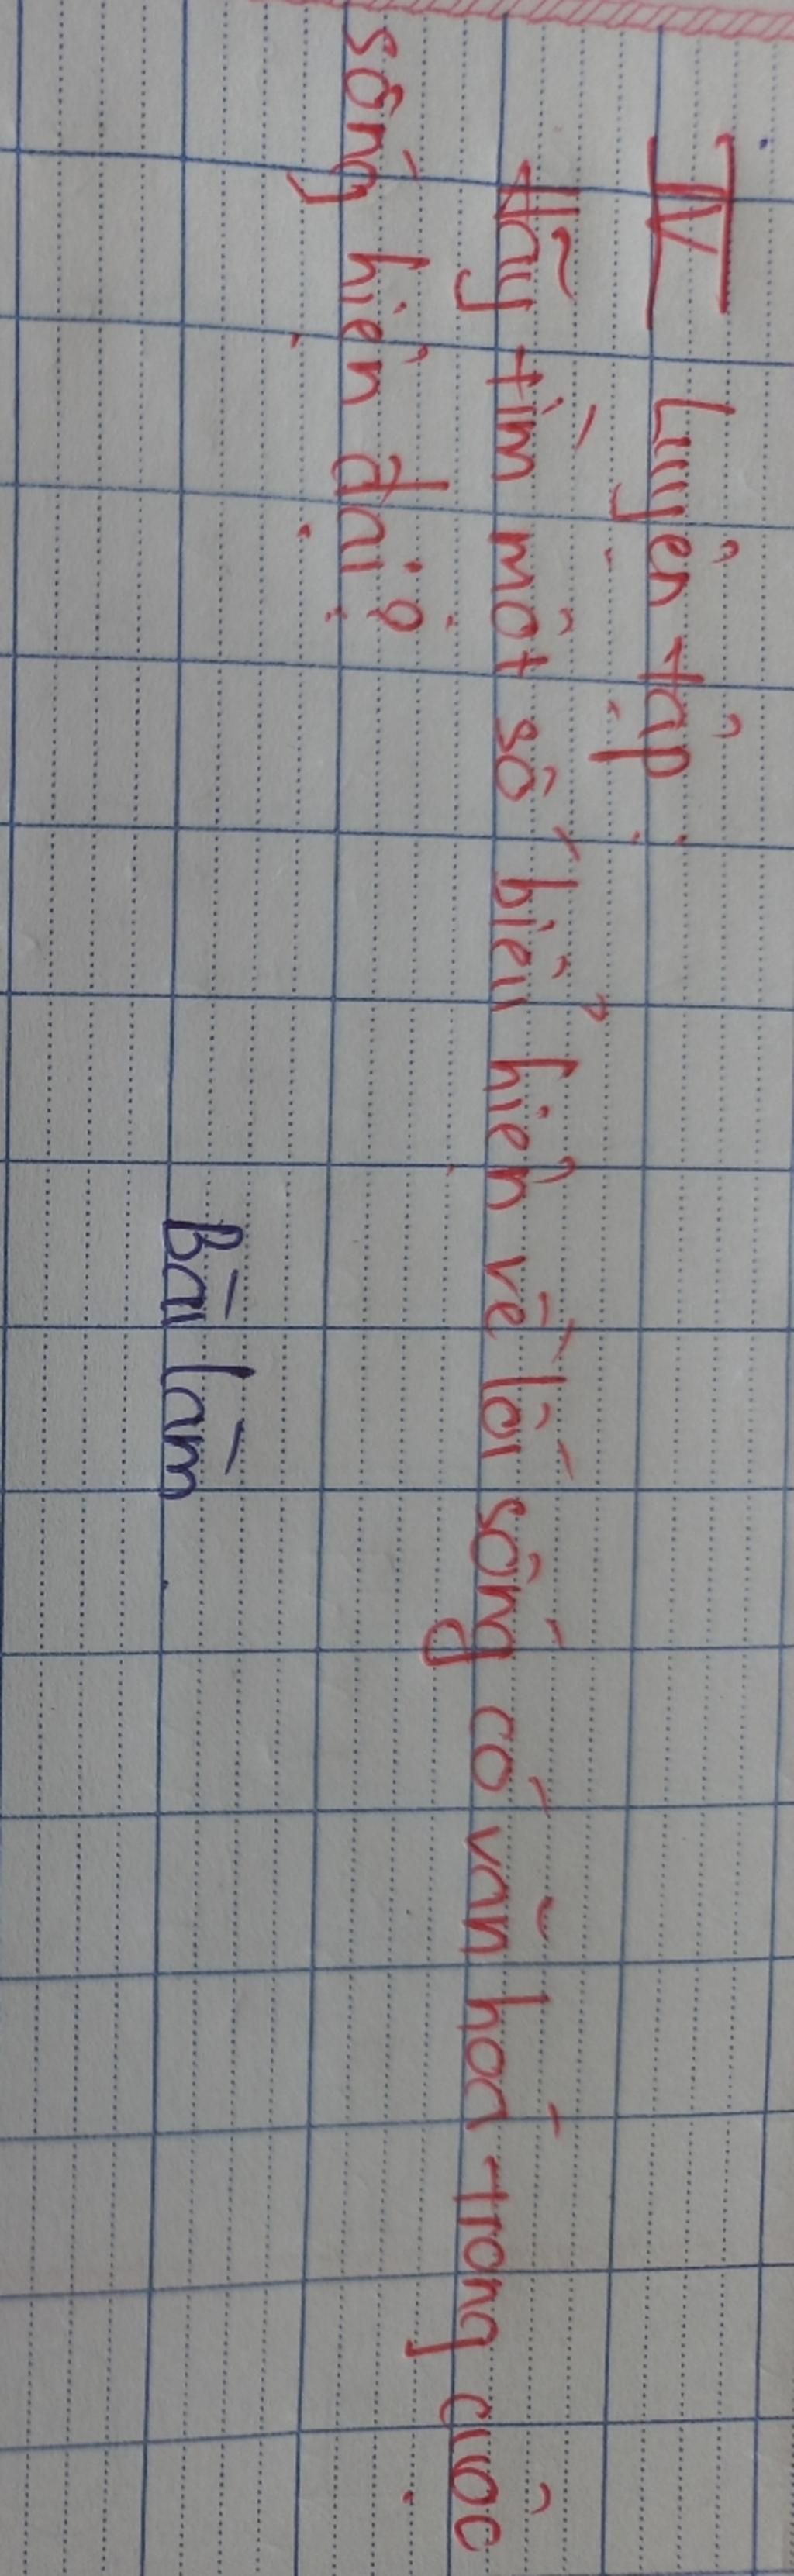 IV Luyện tập:
Hãy tìm một số biểu hiện về lối sống có văn hoá trong cuộc
sống hiện đại?
Bài làm